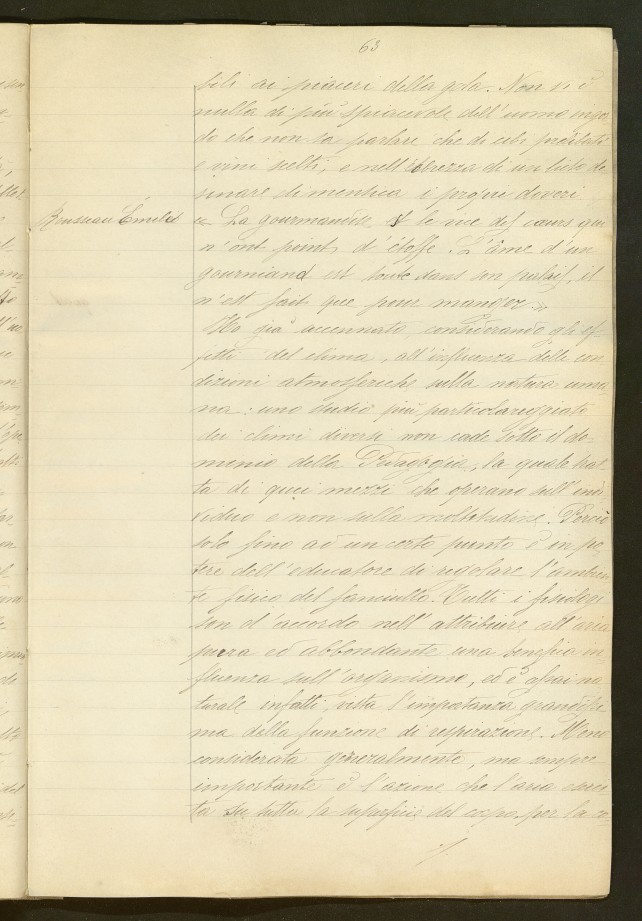 63
sibili ai piaceri della gola. Non vi è
nulla di più spiacevole dell'uomo ingor
do che non sa parlare che di cibi prelibati
e vini scelti, e nell'ebrezza di un lieto de
sinare dimentica i propri doveri
Rousseau Émile
« La gourmandise est le vice des cœurs qui
n'ont point d'étoffe. L'âme d'un
gourmand est toute dans son palais, il
n'est fait que pour manger »
Ho già accennato, considerando gli ef-
fetti del clima, all'influenza delle con
dizioni atmosferiche sulla natura uma
na: uno studio più particolareggiato
dei climi diversi non cade sotto il do-
minio della Pedagogia, la quale trat
ta di quei mezzi che operano sull'indi
viduo e non sulla moltitudine. Perciò
solo fino ad un certo punto è in po-
tere dell'educatore di regolare l'ambien
te fisico del fanciullo. Tutti i fisiologi
son d'accordo nell'attribuire all'aria
pura ed abbondante una benefica in-
fluenza sull'organismo, ed è assai na
turale infatti, vista l'importanza grandissi
ma della funzione di respirazione. Meno
considerata generalmente, ma sempre
importante è l'azione che l'aria eserci
ta su tutta la superficie del corpo per la